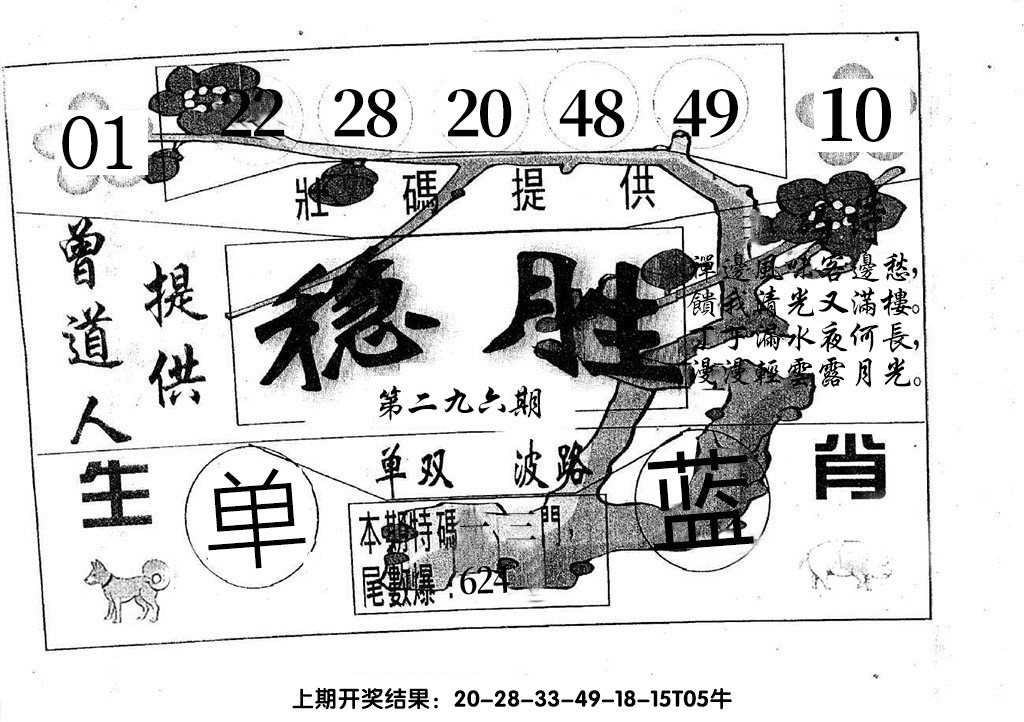 01 22 28 20 48 49 10
壯碼提供
曾道人
提供
稳胜
第二九六期
特
禪邊風味客邊愁，
饋我請光又滿樓。
丁于漏水夜何長，
漫漫輕雲露月光。
单双 波路
生肖
单
蓝
本期特碼一、三門，
尾數爆:624
上期开奖结果：20-28-33-49-18-15T05牛